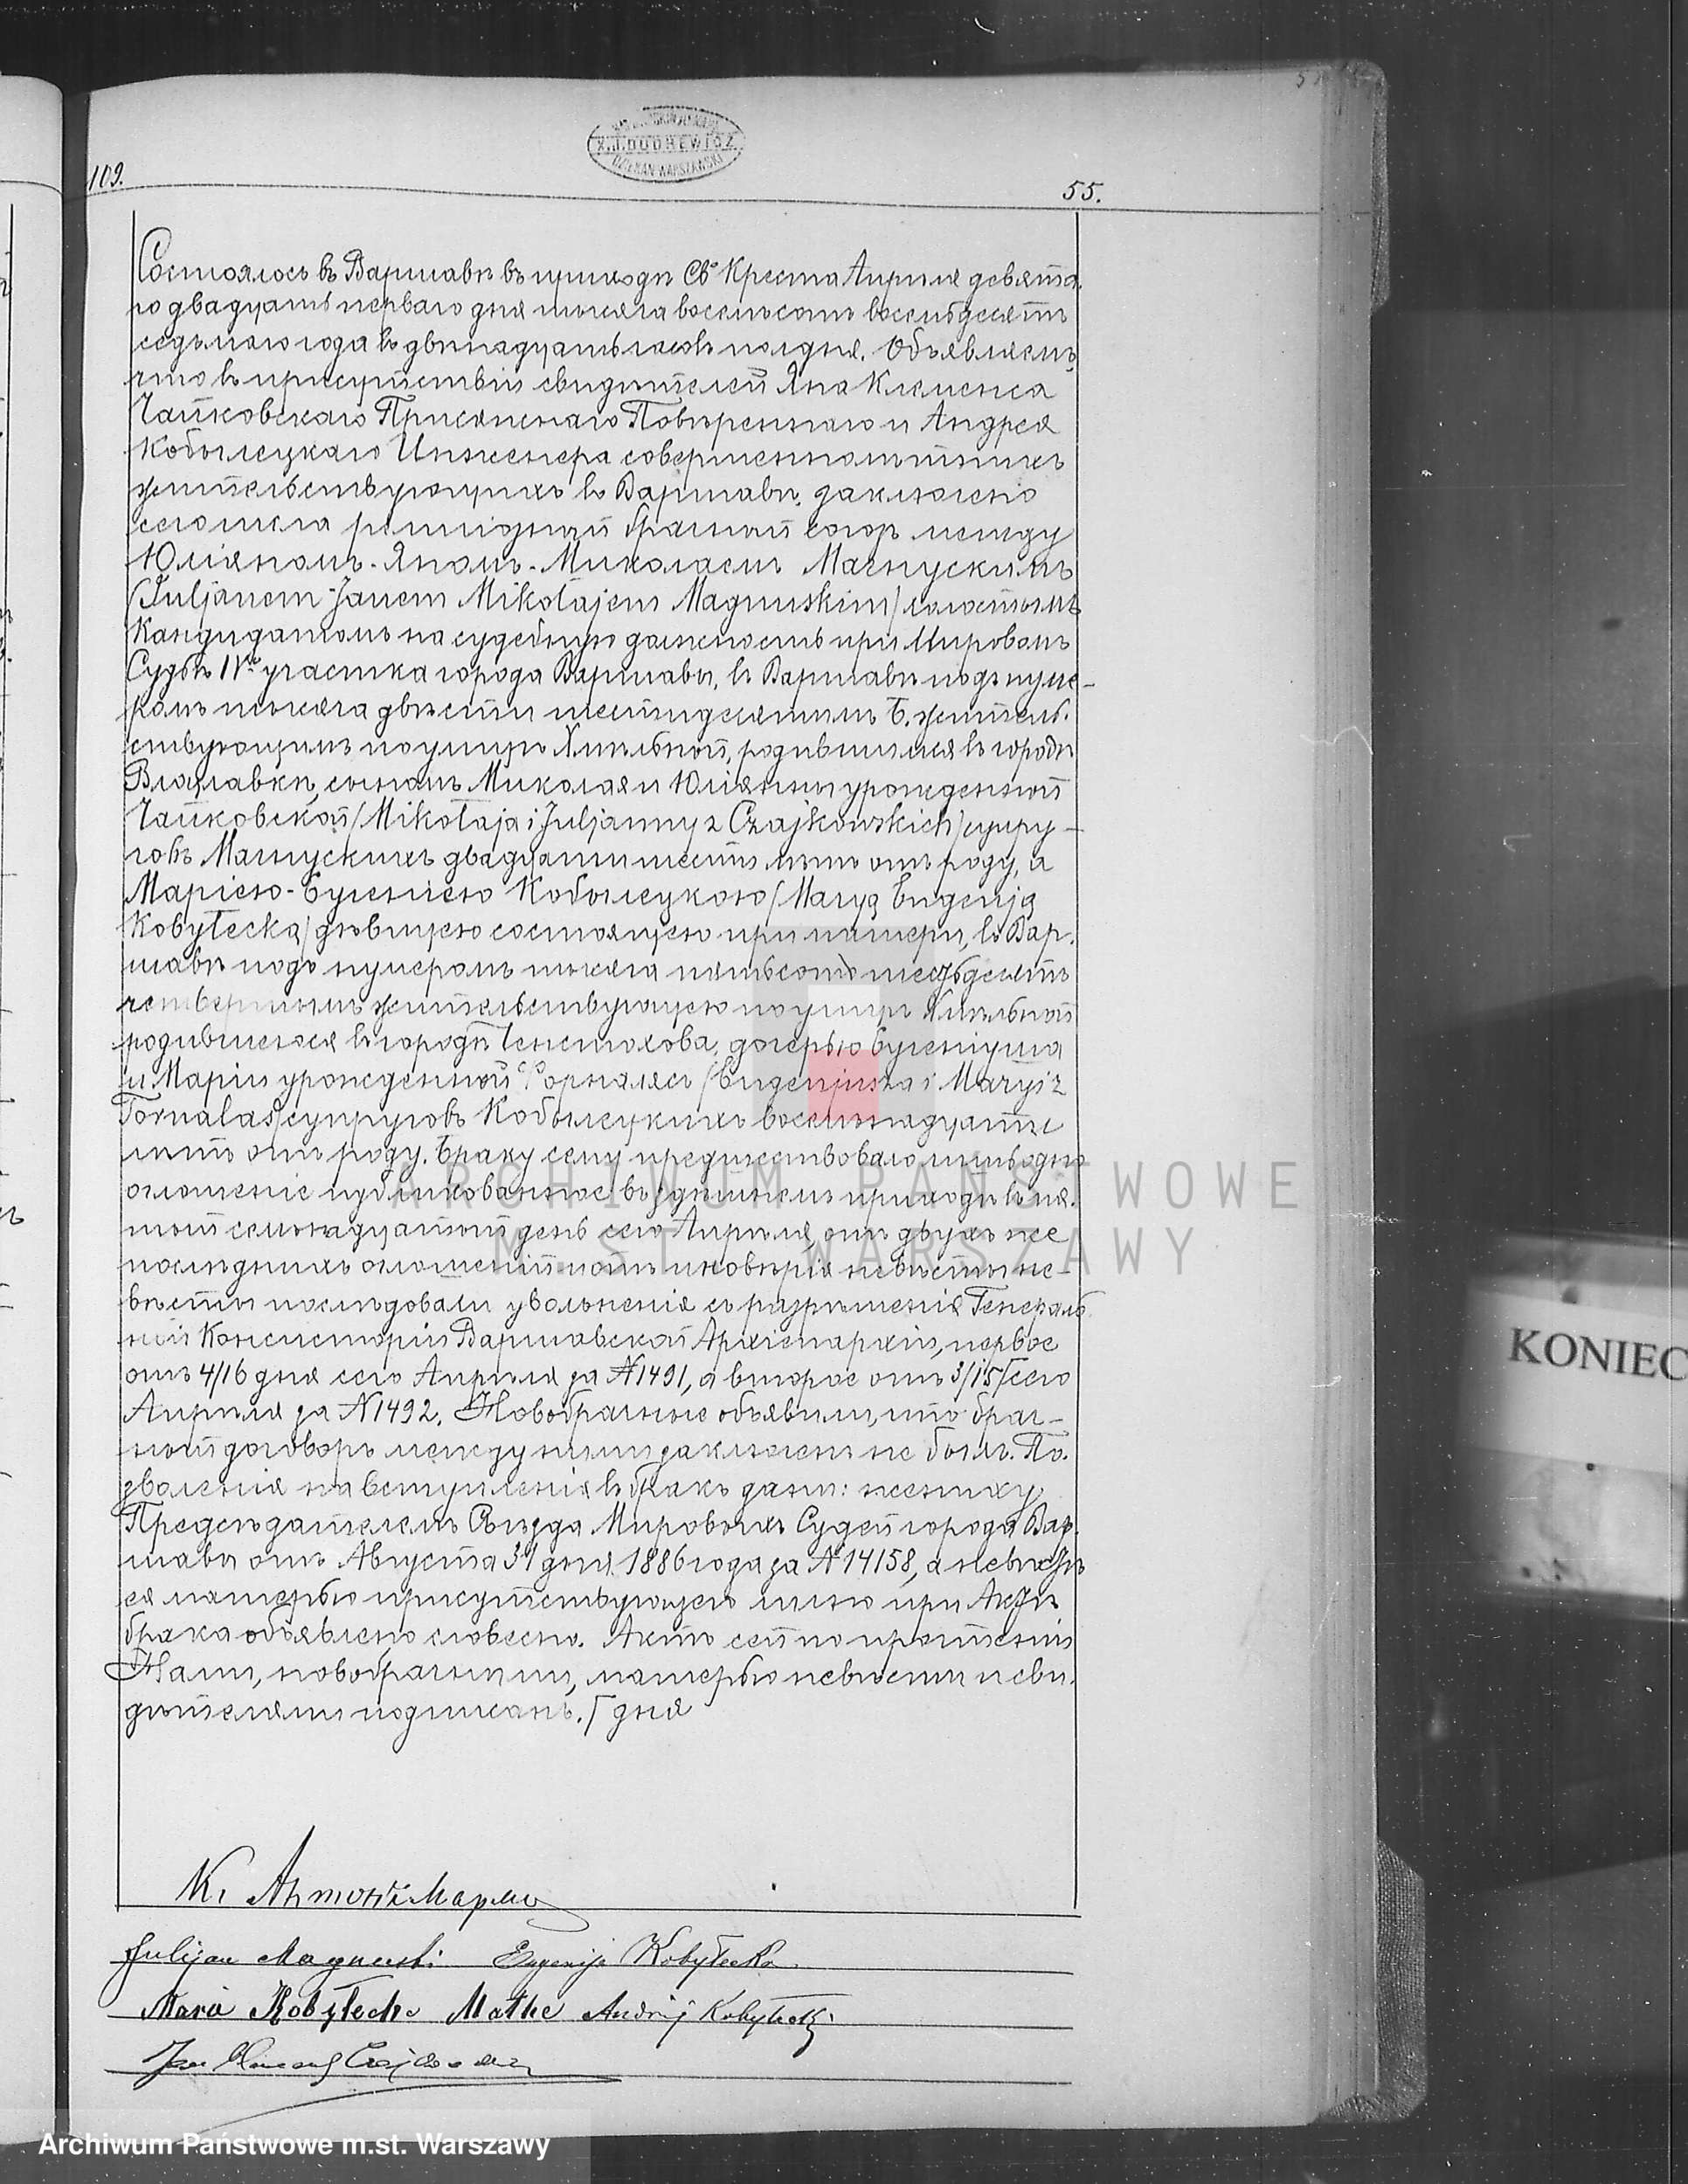 X.J.DUDREWICZ
DZIEKAN WARSZAWSKI
109.
55.
Состоялось въ Варшавѣ въ приходѣ Св. Креста Апрѣля девята-
го двадцать перваго дня тысяча восемьсотъ восемьдесятъ
седьмаго года въ двѣнадцать часовъ полдня. Объявляемъ,
что въ присутствіи свидѣтелей Яна Клеменса
Чайковскаго Присяжнаго Повѣреннаго и Андрея
Кобылецкаго Инженера совершеннолѣтнихъ
жительствующихъ въ Варшавѣ, заключено
сего числа религіозный брачный союзъ между
Юліяномъ-Яномъ-Миколаемъ Магнускимъ
/Juljanem Janem Mikołajem Magnuskim/ холостымъ
Кандидатомъ на судебную должность при Мировомъ
Судьѣ IVго участка города Варшавы, въ Варшавѣ подъ нуме-
ромъ тысяча двѣсти шестидесятымъ Б. житель-
ствующимъ по улицѣ Хмѣльной, родившимся въ городѣ
Влоцлавкѣ, сыномъ Миколая и Юліянны урожденной
Чайковской /Mikołaja i Juljanny z Czajkowskich/ супру-
говъ Магнускихъ двадцати шести лѣтъ отъ роду, и
Маріею-Еугеніею Кобылецкою /Maryą Eugenją
Kobyłecką/ дѣвицею состоящею при матери, въ Вар-
шавѣ подъ нумеромъ тысяча пятьсотъ шестьдесятъ
четвертымъ жительствующею по улицѣ Хмѣльной
родившеюся въ городѣ Ченстохова, дочерью Еугеніуша
и Маріи урожденной Форналясъ /Eugenjusza i Maryi z
Fornalas/ супруговъ Кобылецкихъ восемнадцати
лѣтъ отъ роду. Браку сему предшествовало одно
оглашеніе публикованное въ здѣшнемъ приходѣ въ пя-
тый семнадцатый день сего Апрѣля, отъ двухъ же
послѣднихъ оглашеній и отъ иновѣрія невѣсты не-
вѣсты послѣдовали увольненія съ разрѣшенія Генераль-
ной Консисторіи Варшавской Архіепархіи, первое
отъ 4/16 дня сего Апрѣля за №1491, а второе отъ 3/15 / сего
Апрѣля за №1492. Новобрачные объявили, что брач-
ный договоръ между ними заключенъ не былъ. По-
зволенія на вступленія въ бракъ даны: жениху
Предсѣдателемъ Съѣзда Мировыхъ Судей города Вар-
шавы отъ Августа 31 дня 1886 года за №14158, а невѣстѣ
ея матерью присутствующею лично при Актѣ
брака объявлено словесно. Актъ сей по прочтеніи
Нами, новобрачными, матерью невѣсты и сви-
дѣтелями подписанъ. / дня
К. Антоній
Julijan Magnuski Eugenija Kobyłecka
Maria Kobyłecka Andrzej Kobyłecki
Jan Klemens Czajkowski
ARCHIWUM PAŃSTWOWE
M.ST. WARSZAWY
KONIEC
Archiwum Państwowe m.st. Warszawy